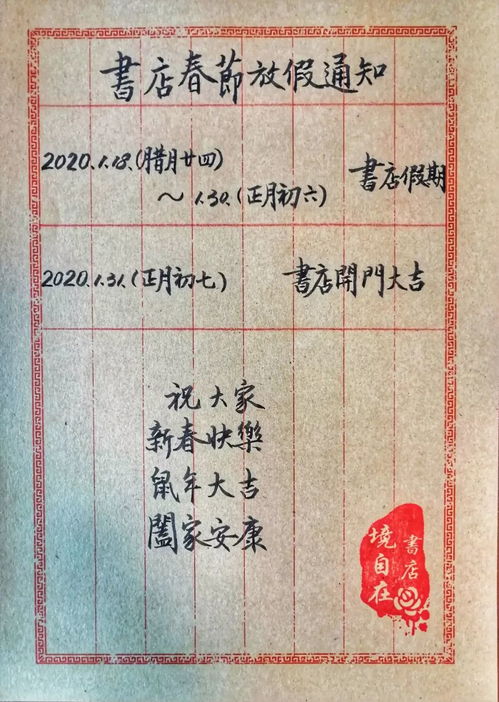 書店春節放假通知
2020.1.18.(腊月廿四)
～ 1.30.(正月初六) 書店假期
2020.1.31.(正月初七) 書店開門大吉
祝大家
新春快樂
鼠年大吉
闔家安康
書店
境自在